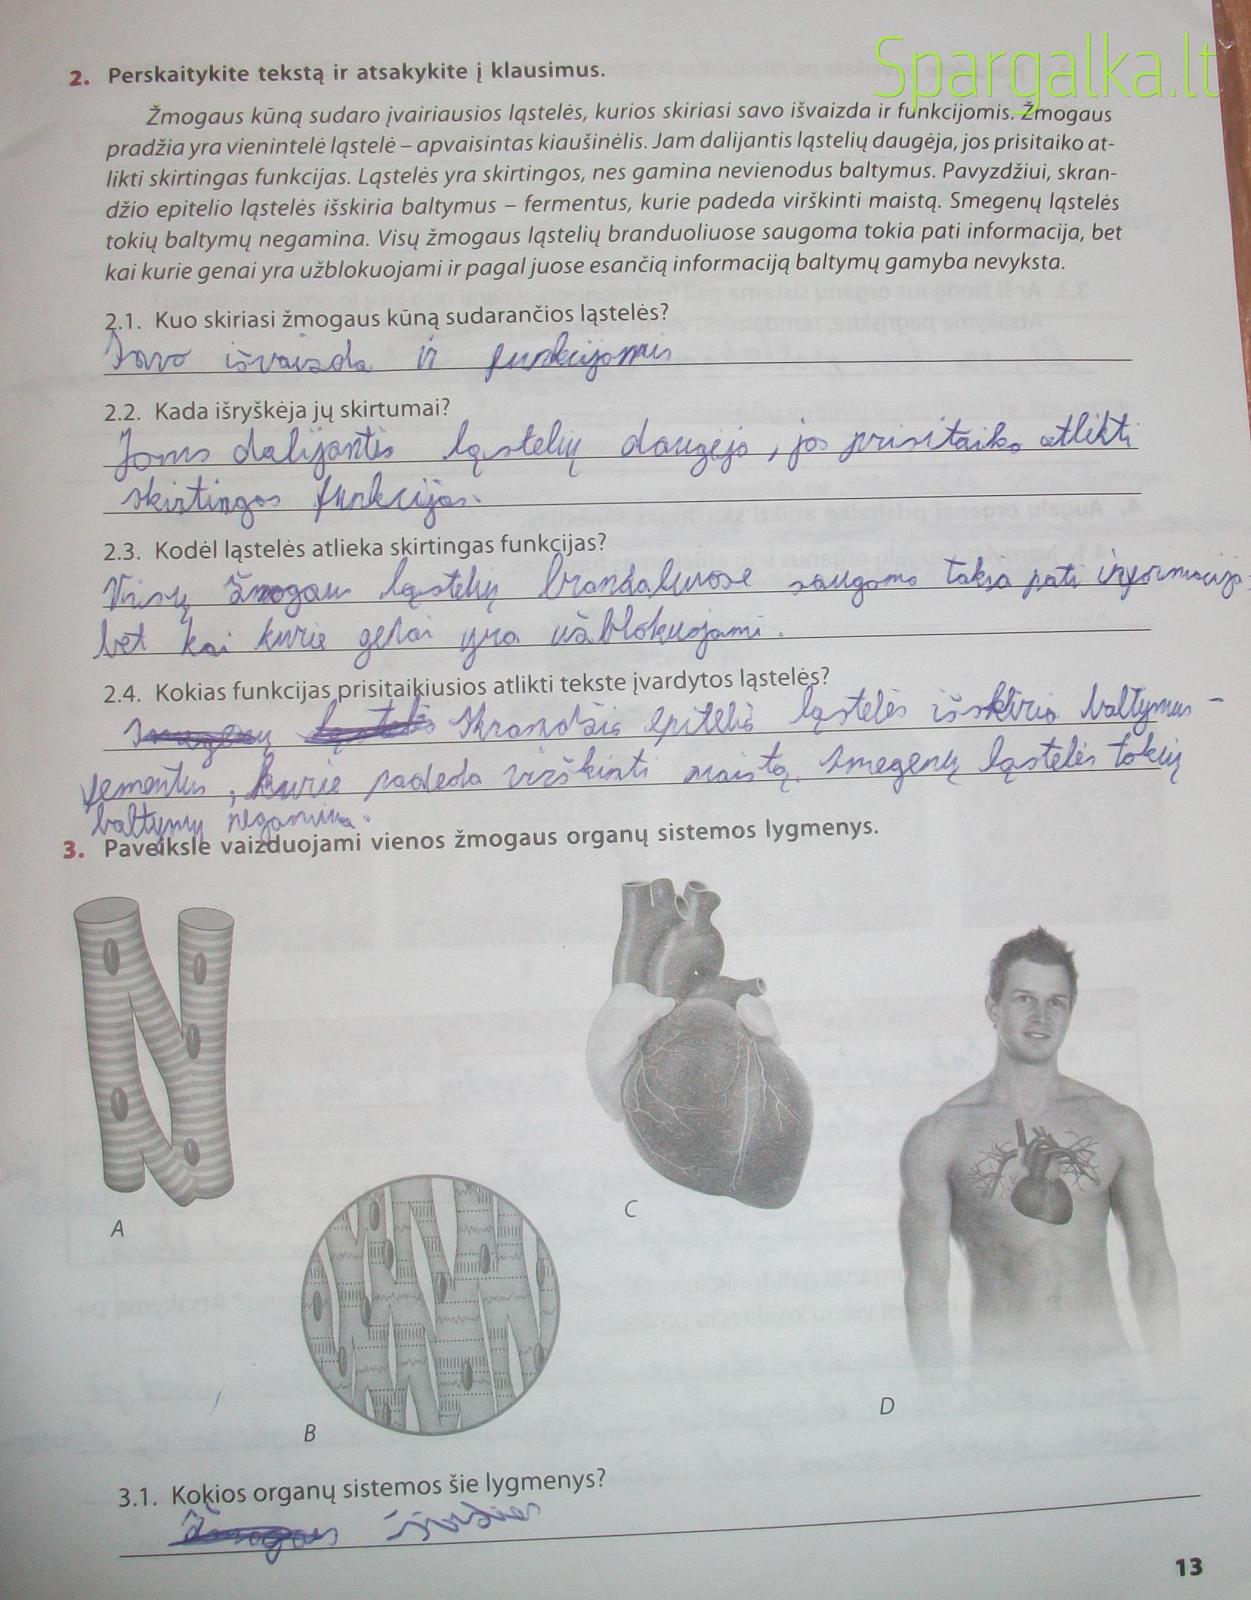 Spargalka.lt
2. Perskaitykite tekstą ir atsakykite į klausimus.
Žmogaus kūną sudaro įvairiausios ląstelės, kurios skiriasi savo išvaizda ir funkcijomis. Žmogaus
pradžia yra vienintelė ląstelė – apvaisintas kiaušinėlis. Jam dalijantis ląstelių daugėja, jos prisitaiko at-
likti skirtingas funkcijas. Ląstelės yra skirtingos, nes gamina nevienodus baltymus. Pavyzdžiui, skran-
džio epitelio ląstelės išskiria baltymus – fermentus, kurie padeda virškinti maistą. Smegenų ląstelės
tokių baltymų negamina. Visų žmogaus ląstelių branduoliuose saugoma tokia pati informacija, bet
kai kurie genai yra užblokuojami ir pagal juose esančią informaciją baltymų gamyba nevyksta.
2.1. Kuo skiriasi žmogaus kūną sudarančios ląstelės?
Savo išvaizda ir funkcijomis
2.2. Kada išryškėja jų skirtumai?
dalijantis ląstelių daugėja, jos prisitaiko atlikti
skirtingas funkcijas.
2.3. Kodėl ląstelės atlieka skirtingas funkcijas?
Visų žmogaus ląstelių saugoma tokia pati informacija
bet kai kurie genai yra užblokuojami.
2.4. Kokias funkcijas prisitaikiusios atlikti tekste įvardytos ląstelės?
Skrandžio epitelio ląstelės išskiria baltymus -
kurie padeda virškinti maistą. Smegenų ląstelės tokių
baltymų negamina.
3. Paveiksle vaizduojami vienos žmogaus organų sistemos lygmenys.
A
B
C
D
3.1. Kokios organų sistemos šie lygmenys?
13